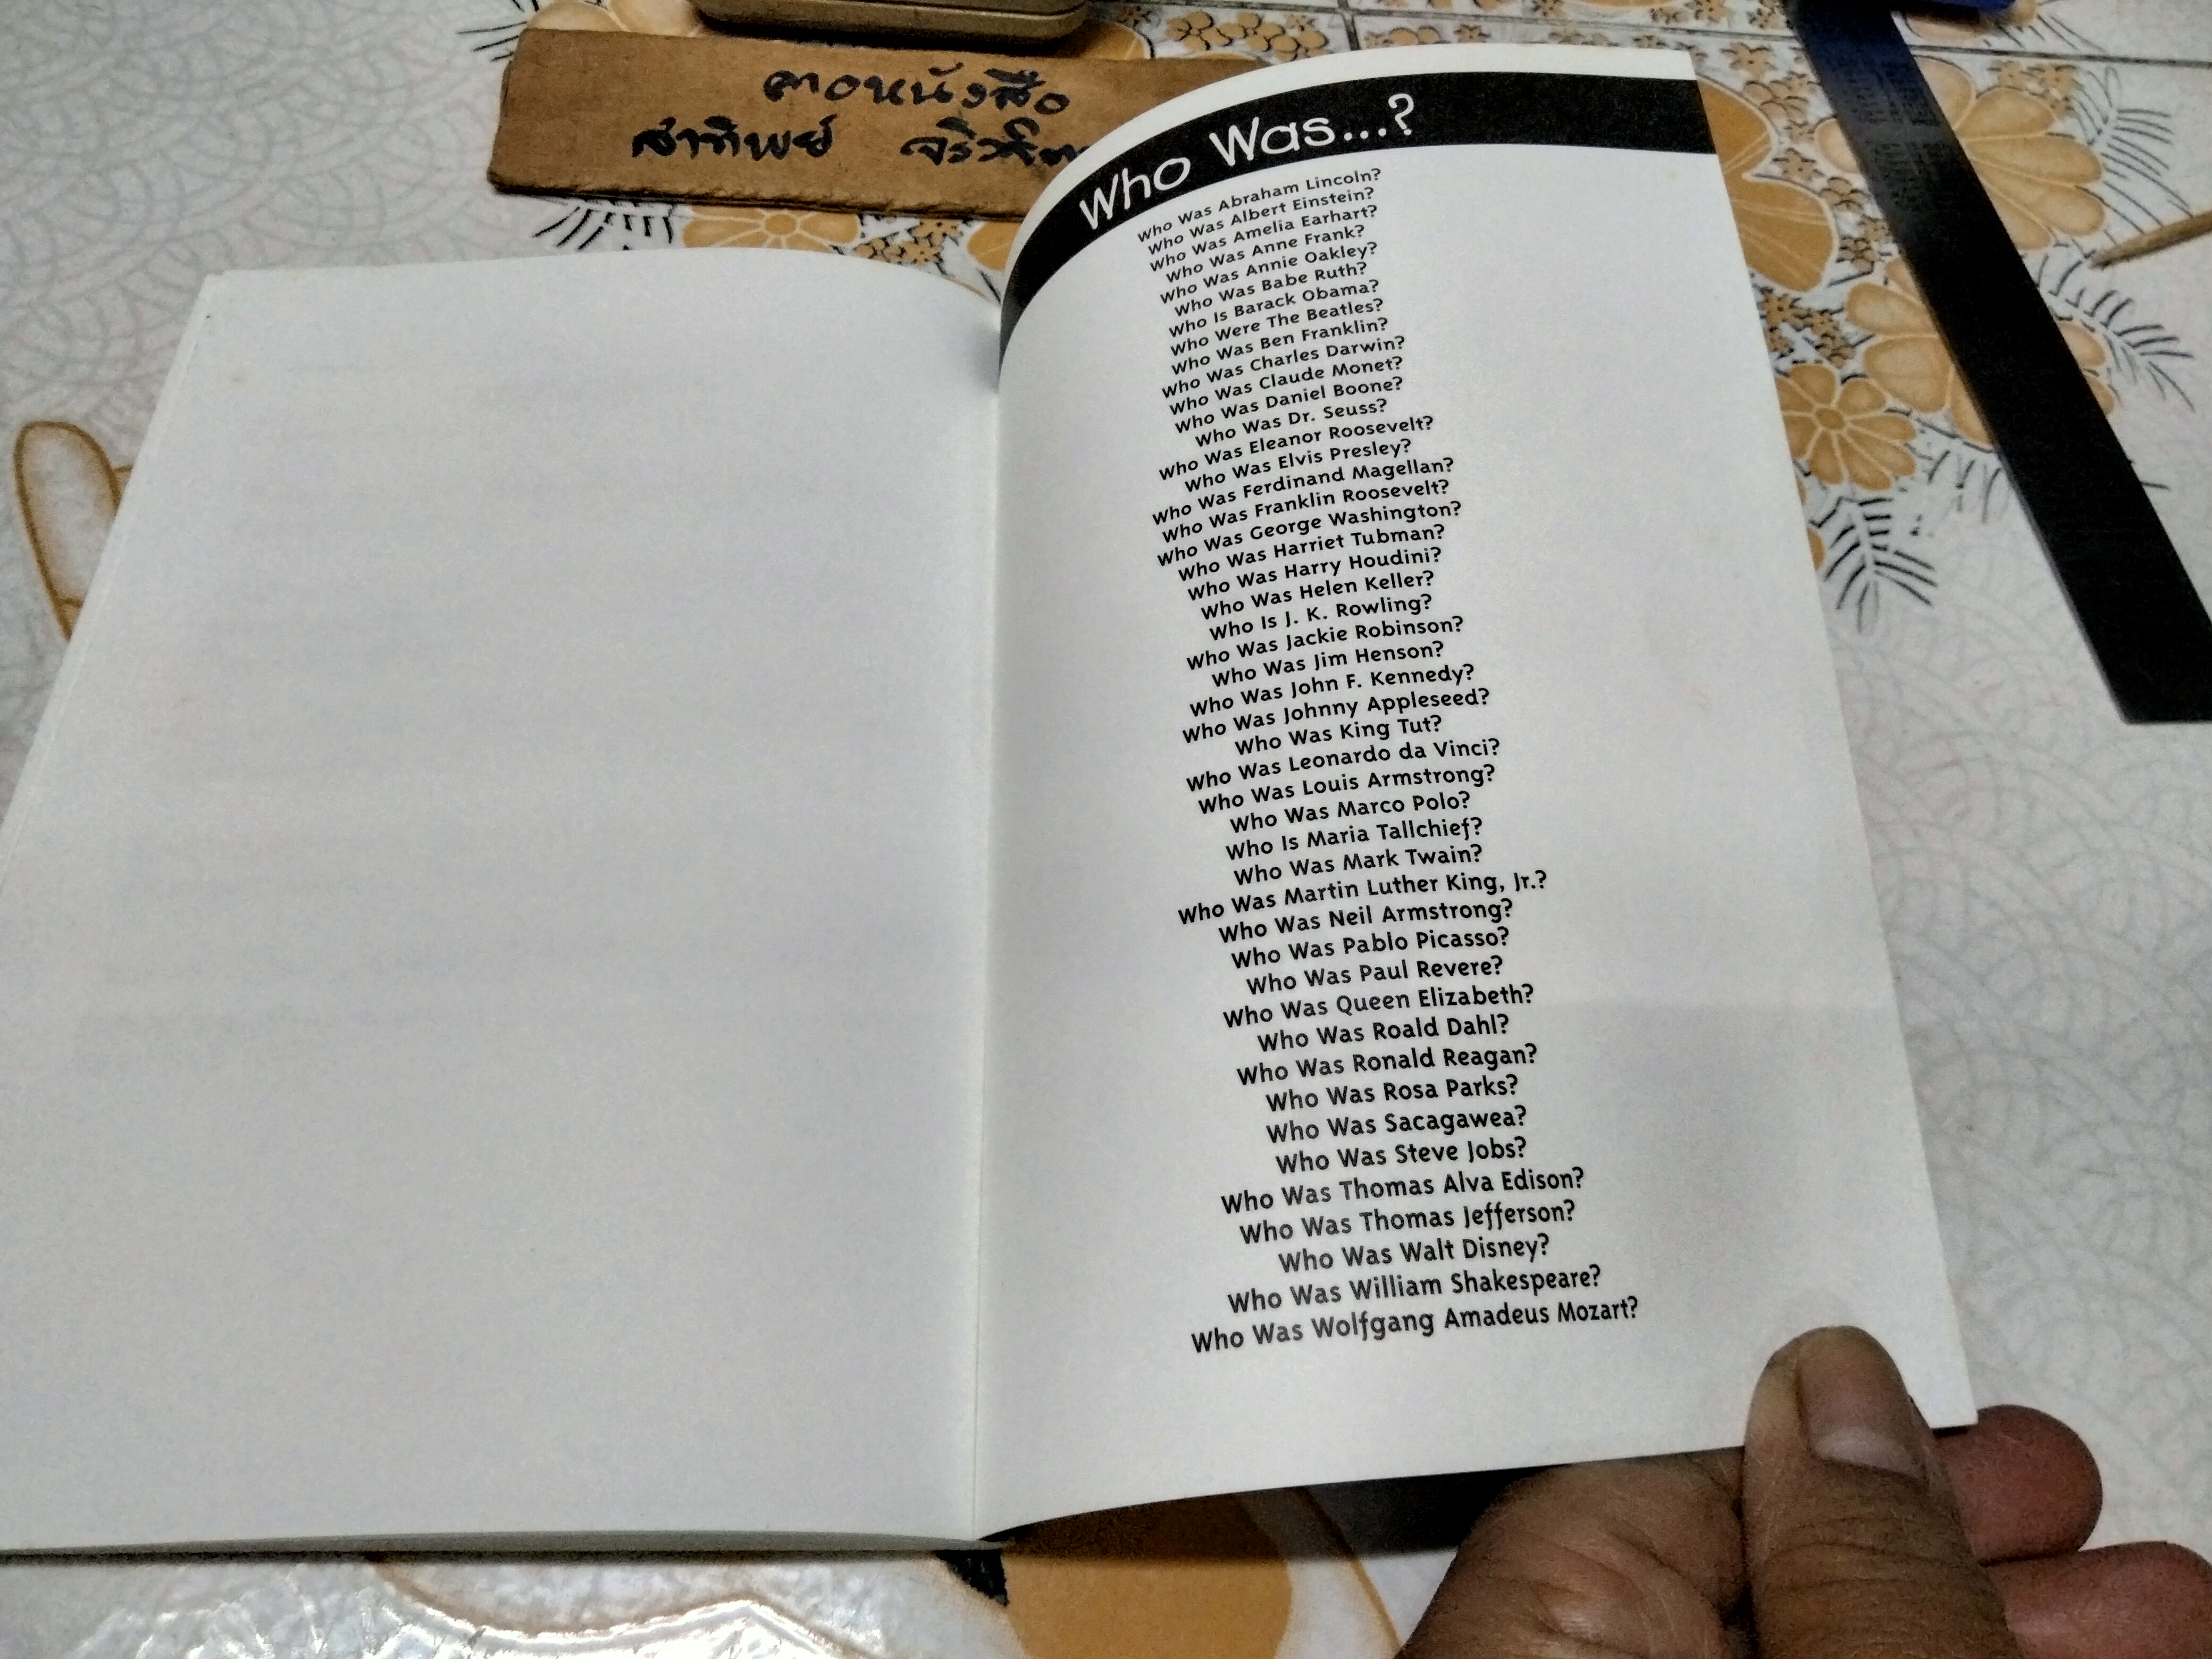 ตอหนังสือ
สาทิพย์
Who Was...?
Who Was Abraham Lincoln?
Who Was Albert Einstein?
Who Was Amelia Earhart?
Who Was Anne Frank?
Who Was Annie Oakley?
Who Was Babe Ruth?
Who Is Barack Obama?
Who Were The Beatles?
Who Was Ben Franklin?
Who Was Charles Darwin?
Who Was Claude Monet?
Who Was Daniel Boone?
Who Was Dr. Seuss?
Who Was Eleanor Roosevelt?
Who Was Elvis Presley?
Who Was Ferdinand Magellan?
Who Was Franklin Roosevelt?
Who Was George Washington?
Who Was Harriet Tubman?
Who Was Harry Houdini?
Who Was Helen Keller?
Who Is J. K. Rowling?
Who Was Jackie Robinson?
Who Was Jim Henson?
Who Was John F. Kennedy?
Who Was Johnny Appleseed?
Who Was King Tut?
Who Was Leonardo da Vinci?
Who Was Louis Armstrong?
Who Was Marco Polo?
Who Is Maria Tallchief?
Who Was Mark Twain?
Who Was Martin Luther King, Jr.?
Who Was Neil Armstrong?
Who Was Pablo Picasso?
Who Was Paul Revere?
Who Was Queen Elizabeth?
Who Was Roald Dahl?
Who Was Ronald Reagan?
Who Was Rosa Parks?
Who Was Sacagawea?
Who Was Steve Jobs?
Who Was Thomas Alva Edison?
Who Was Thomas Jefferson?
Who Was Walt Disney?
Who Was William Shakespeare?
Who Was Wolfgang Amadeus Mozart?